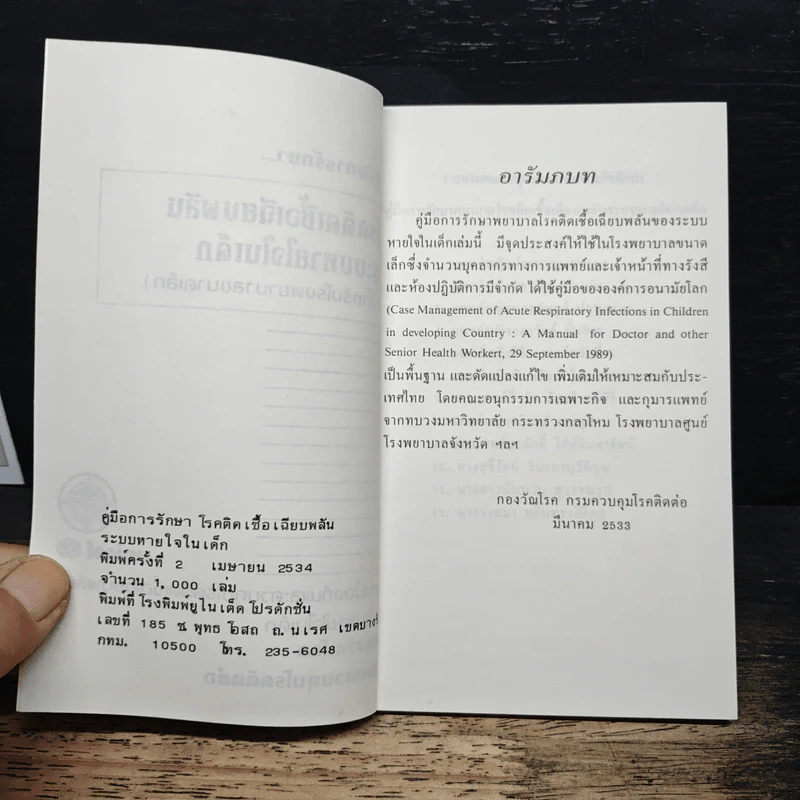 คู่มือการรักษา โรคติดเชื้อเฉียบพลัน
ระบบหายใจในเด็ก
พิมพ์ครั้งที่ 2 เมษายน 2534
จำนวน 1,000 เล่ม
พิมพ์ที่ โรงพิมพ์ยูไนเต็ด โปรดักชั่น
เลขที่ 185 ซ.พุทธโอสถ ถ.นเรศ เขตบางรั
กทม. 10500 โทร. 235-6048
อารัมภบท
คู่มือการรักษาพยาบาลโรคติดเชื้อเฉียบพลันของระบบ
หายใจในเด็กเล่มนี้ มีจุดประสงค์ให้ใช้ในโรงพยาบาลขนาด
เล็กซึ่งจำนวนบุคลากรทางการแพทย์และเจ้าหน้าที่ทางรังสี
และห้องปฏิบัติการมีจำกัด ได้ใช้คู่มือขององค์การอนามัยโลก
(Case Management of Acute Respiratory Infections in Children
in developing Country : A Manual for Doctor and other
Senior Health Workert, 29 September 1989)
เป็นพื้นฐาน และดัดแปลงแก้ไข เพิ่มเติมให้เหมาะสมกับประ-
เทศไทย โดยคณะอนุกรรมการเฉพาะกิจ และกุมารแพทย์
จากทบวงมหาวิทยาลัย กระทรวงกลาโหม โรงพยาบาลศูนย์
โรงพยาบาลจังหวัด ฯลฯ
กองวัณโรค กรมควบคุมโรคติดต่อ
มีนาคม 2533